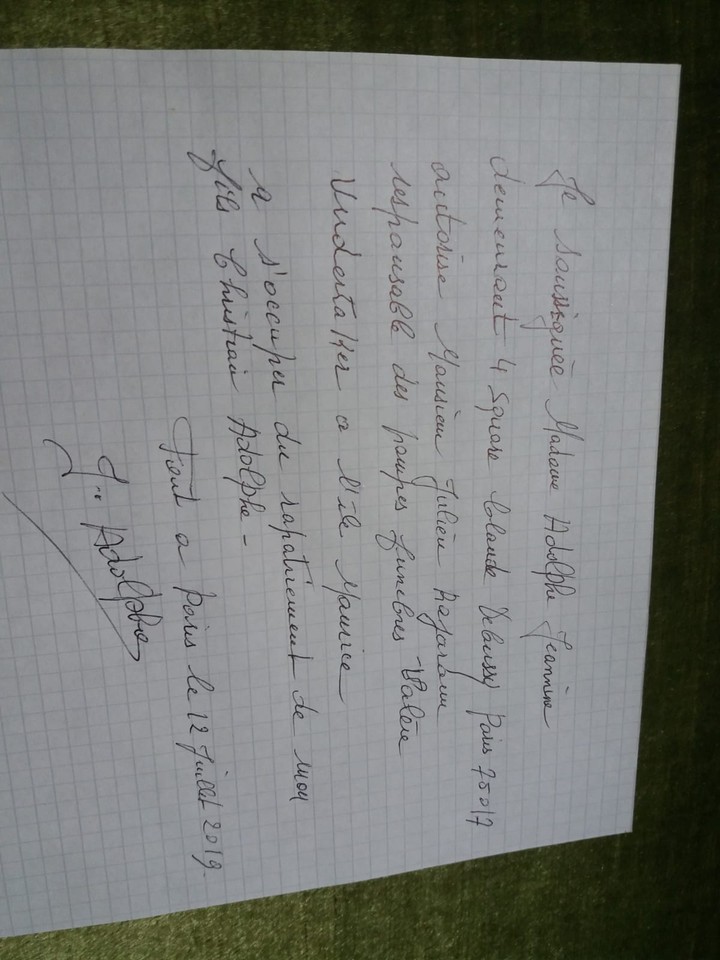 Je soussignée Madame Adolphe Jeannine
demeurant 4 Square Claude Debussy Paris 75017
autorise Monsieur Julien Ragaram
responsable des pompes funebres
Undertaker a l'ile Maurice
a s'occuper du rapatriement de mon
fils Christian Adolphe -
Fait a Paris le 12 Juillet 2019.
J.. Adolphe